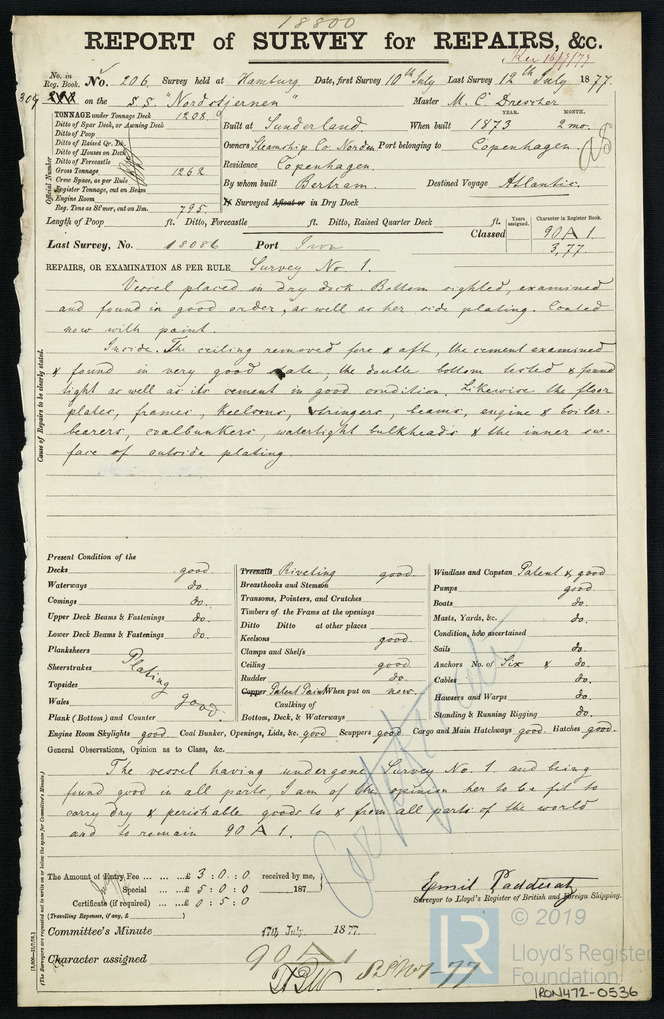 18800
REPORT of SURVEY for REPAIRS, &c.
No. in Reg. Book. No. 206 Survey held at Hamburg Date, first Survey 10th July Last Survey 12th July 1877.
309 on the S.S. "Nordstjernen" Master M. C. Drescher
TONNAGE under Tonnage Deck 1208
Ditto of Spar Deck, or Awning Deck
Ditto of Poop
Ditto of Raised Qr. Dk.
Ditto of Houses on Deck
Ditto of Forecastle
Gross Tonnage 1262
Crew Space, as per Rule
Register Tonnage, cut on Beam
Engine Room
Reg. Tons as St'mer, cut on Bm. 795.
Official Number
Built at Sunderland. When built YEAR. 1873 MONTH. 2 mo.
Owners Steamship Co. Norden Port belonging to Copenhagen.
Residence Copenhagen.
By whom built Bertram. Destined Voyage Atlantic.
Surveyed Afloat or in Dry Dock
Length of Poop ft. Ditto, Forecastle ft. Ditto, Raised Quarter Deck ft.
Last Survey, No. 18086 Port Iron
Classed Years assigned. Character in Register Book. 90 A 1.
3,77
REPAIRS, OR EXAMINATION AS PER RULE Survey No. 1.
Cause of Repairs to be clearly stated.
Vessel placed in dry dock. Bottom sighted, examined
and found in good order, as well as her side plating. Coated
now with paint.
Inside. The ceiling removed fore & aft, the cement examined
& found in very good state, the double bottom tested & found
tight as well as its cement in good condition. Likewise the floor
plates, frames, keelsons, stringers, beams, engine & boiler-
bearers, coalbunkers, watertight bulkheads & the inner sur-
face of outside plating.
Present Condition of the
Decks good.
Waterways do.
Comings do.
Upper Deck Beams & Fastenings do.
Lower Deck Beams & Fastenings do.
Planksheers
Sheerstrakes Plating
Topsides
Wales good.
Plank (Bottom) and Counter
Treenails Riveting good.
Breasthooks and Stemson
Transoms, Pointers, and Crutches
Timbers of the Frame at the openings
Ditto Ditto at other places
Keelsons good.
Clamps and Shelfs
Ceiling good.
Rudder do.
Copper Patent Paint When put on new.
Caulking of
Bottom, Deck, & Waterways
Windlass and Capstan Patent & good
Pumps good
Boats do.
Masts, Yards, &c. do.
Condition, how ascertained
Sails do.
Anchors No. of Six & do.
Cables do.
Hawsers and Warps do.
Standing & Running Rigging do.
Engine Room Skylights good Coal Bunker, Openings, Lids, &c. good Scuppers good Cargo and Main Hatchways good. Hatches good.
General Observations, Opinion as to Class, &c.
The vessel having undergone Survey No. 1. and being
found good in all parts, I am of the opinion her to be fit to
carry dry & perishable goods to & from all parts of the world
and to remain 90 A 1.
The Amount of Entry Fee ... £ 3 : 0 : 0 received by me,
Special ... £ 5 : 0 : 0 187
Certificate (if required) ... 0 : 5 : 0
(Travelling Expenses, if any, £ )
Emil Padderatz
Surveyor to Lloyd's Register of British and Foreign Shipping.
Committee's Minute 17th July 1877.
Character assigned 90 A 1
(The Surveyors are requested not to write on or below the space for Committee's Minute.)
LR © 2019
Lloyd's Register
Foundation
IRON472-0536